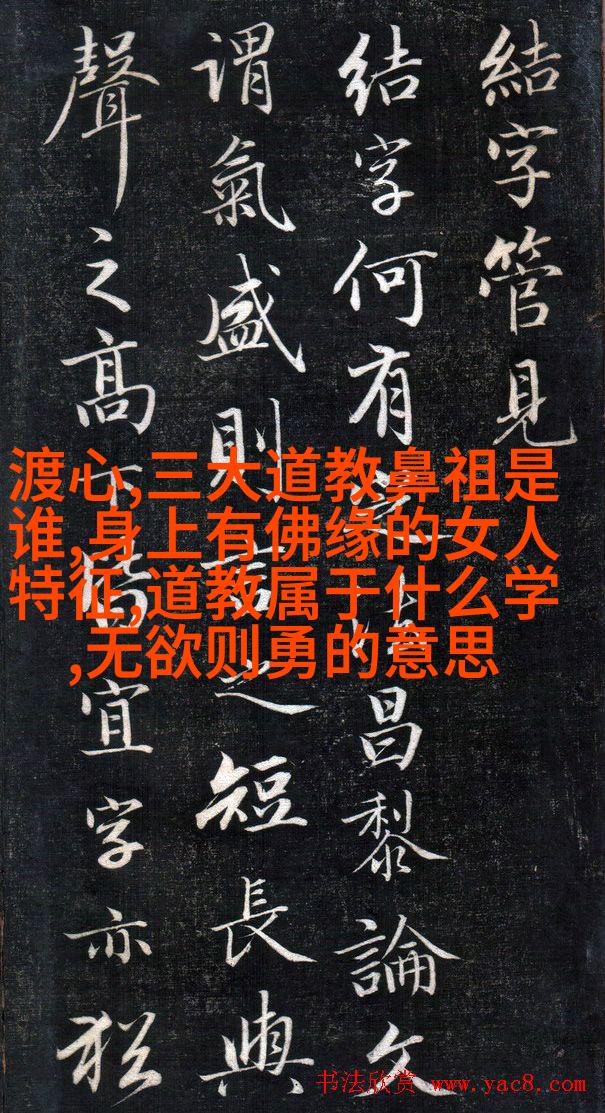 結字管見
结字何有昌黎論文
謂氣盛則言之短長與
聲之高下皆宜字亦猶
渡心,三大道教鼻祖是
谁,身上有佛缘的女人
特征,道教属于什么学
,无欲则勇的意思
书法欣赏 www.yac8.com